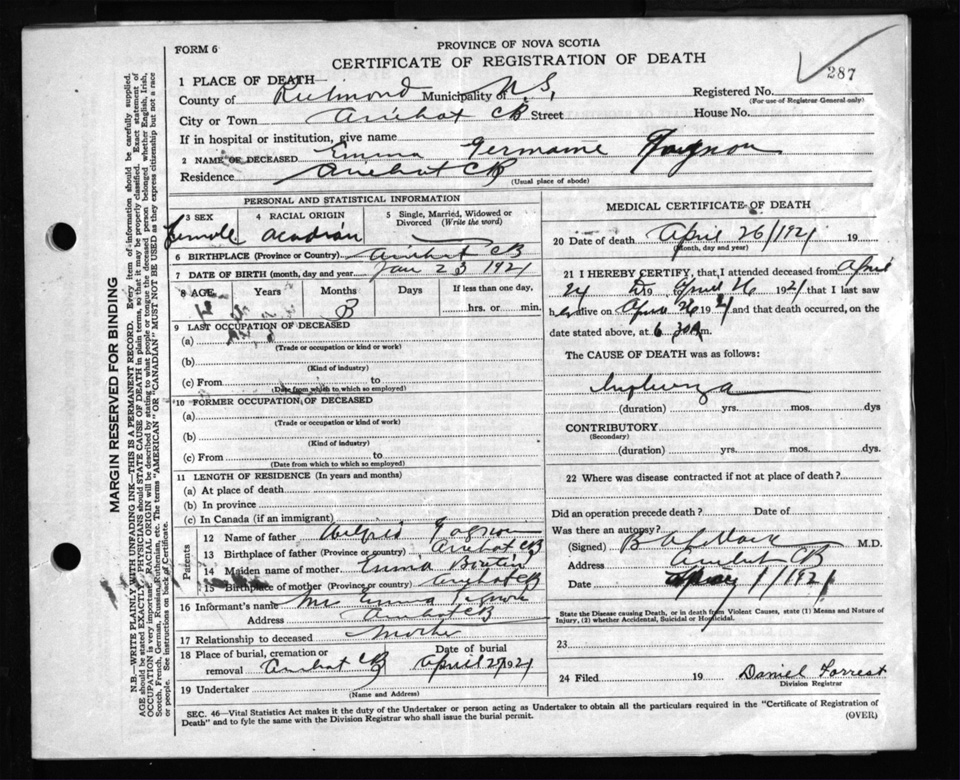 FORM 6
PROVINCE OF NOVA SCOTIA
CERTIFICATE OF REGISTRATION OF DEATH
287
1 PLACE OF DEATH—
County of Richmond Municipality of N.S.
Registered No.
(For use of Registrar General only)
City or Town Arichat CB Street
House No.
If in hospital or institution, give name
2 NAME OF DECEASED Emma Germaine
Residence Arichat CB
(Usual place of abode)
PERSONAL AND STATISTICAL INFORMATION
3 SEX
Female
4 RACIAL ORIGIN
Acadian
5 Single, Married, Widowed or Divorced (Write the word)
6 BIRTHPLACE (Province or Country) Arichat CB
7 DATE OF BIRTH (month, day and year) Jan 23 1921
8 AGE Years Months Days If less than one day,
3 hrs. or min.
9 LAST OCCUPATION OF DECEASED
(a)
(Trade or occupation or kind or work)
(b)
(Kind of industry)
(c) From to
(Date from which to which so employed)
10 FORMER OCCUPATION OF DECEASED
(a)
(Trade or occupation or kind of work)
(b)
(Kind of industry)
(c) From to
(Date from which to which so employed)
11 LENGTH OF RESIDENCE (in Years and months)
(a) At place of death
(b) In province
(c) In Canada (if an immigrant)
Parents
12 Name of father Wilfrid
13 Birthplace of father (Province or country) Arichat CB
14 Maiden name of mother Emma Boutin
15 Birthplace of mother (Province or country) Arichat CB
16 Informant's name Mrs Emma
Address Arichat CB
17 Relationship to deceased Mother
18 Place of burial, cremation or removal Arichat CB
Date of burial
April 27 1921
19 Undertaker
(Name and Address)
MEDICAL CERTIFICATE OF DEATH
20 Date of death April 26/1921 19
(Month, day and year)
21 I HEREBY CERTIFY, that I attended deceased from April
24 19 to April 26 1921 that I last saw
h er alive on April 26 1921 and that death occurred, on the
date stated above, at 6.30 A m.
The CAUSE OF DEATH was as follows:
Influenza
(duration) yrs. mos. dys
CONTRIBUTORY
(Secondary)
(duration) yrs. mos. dys
22 Where was disease contracted if not at place of death?
Did an operation precede death? Date of
Was there an autopsy?
(Signed) M.D.
Address Arichat CB
Date May 1/1921
State the Disease causing Death, or in death from Violent Causes, state (1) Means and Nature of Injury, (2) whether Accidental, Suicidal or Homicidal.
23
24 Filed 19 Daniel Forrest
Division Registrar
SEC. 46—Vital Statistics Act makes it the duty of the Undertaker or person acting as Undertaker to obtain all the particulars required in the "Certificate of Registration of
Death" and to fyle the same with the Division Registrar who shall issue the burial permit.
(OVER)
MARGIN RESERVED FOR BINDING
N.B.—WRITE PLAINLY WITH UNFADING INK—THIS IS A PERMANENT RECORD. Every item of information should be carefully supplied.
AGE should be stated EXACTLY. PHYSICIANS should STATE CAUSE OF DEATH in plain terms, so that it may be properly classified. Exact statement of
OCCUPATION is very important. RACIAL ORIGIN will be described by stating to what people or tongue the deceased person belonged whether English, Irish,
Scotch, French, German, Russian, Ruthenian, etc. The terms "AMERICAN" OR "CANADIAN" MUST NOT BE USED as they express citizenship but not a race
or people. See instructions on back of Certificate.